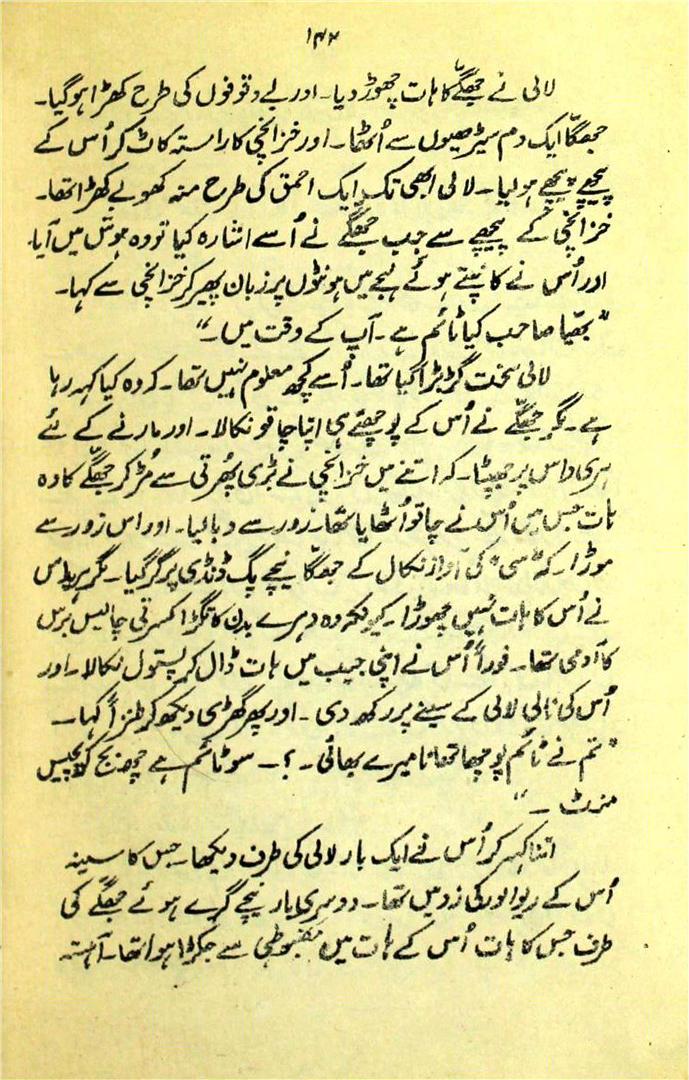 ۱۴۴
لالی نے جھگّے کا ہات چھوڑ دیا۔ اور بے وقوفوں کی طرح کھڑا ہو گیا۔
جھگّا ایک دم سیڑھیوں سے اُٹھا۔ اور خزانچی کا راستہ کاٹ کر اُس کے
پیچھے پیچھے ہو لیا۔ لالی ابھی تک ایک احمق کی طرح منہ کھولے کھڑا تھا۔
خزانچی کے پیچھے سے جب جھگّے نے اُسے اشارہ کیا تو وہ ہوش میں آیا۔
اور اُس نے کانپتے ہوئے لہجے میں ہونٹوں پر زبان پھیر کر خزانچی سے کہا۔
"بھیّا صاحب کیا ٹائم ہے۔ آپ کے وقت میں۔"
لالی سخت گڑبڑا گیا تھا۔ اُسے کچھ معلوم نہیں تھا۔ کہ وہ کیا کہہ رہا
ہے۔ مگر جھگّے نے اُس کے پوچھتے ہی اپنا چاقو نکالا۔ اور مارنے کے لئے
ہری داس پر جھپٹا۔ کہ اتنے میں خزانچی نے بڑی پھُرتی سے مُڑ کر جھگّے کا وہ
ہات جس میں اُس نے چاقو اُٹھایا تھا۔ زور سے دبا لیا۔ اور اس زور سے
موڑا۔ کہ "سی" کی آواز نکال کے جھگّا نیچے پگ ڈنڈی پر گر گیا۔ مگر ہریداس
نے اُس کا ہات نہیں چھوڑا۔ کیونکہ وہ دہرے بدن کا تگڑا کسرتی چالیس برس
کا آدمی تھا۔ فوراً اُس نے اپنی جیب میں ہات ڈال کر پستول نکالا۔ اور
اُس کی نالی لالی کے سینے پر رکھ دی۔ اور پھر گھڑی دیکھ کر طنزاً کہا۔
"تم نے ٹائم پوچھا تھا نا میرے بھائی۔ ؟۔ سو ٹائم ہے چھ بج کر پچیس
منٹ ۔"
اتنا کہہ کر اُس نے ایک بار لالی کی طرف دیکھا۔ جس کا سینہ
اُس کے ریوالور کی زد میں تھا۔ دوسری بار نیچے گرے ہوئے جھگّے کی
طرف جس کا ہات اُس کے ہات میں مضبوطی سے جکڑا ہوا تھا۔ آہستہ